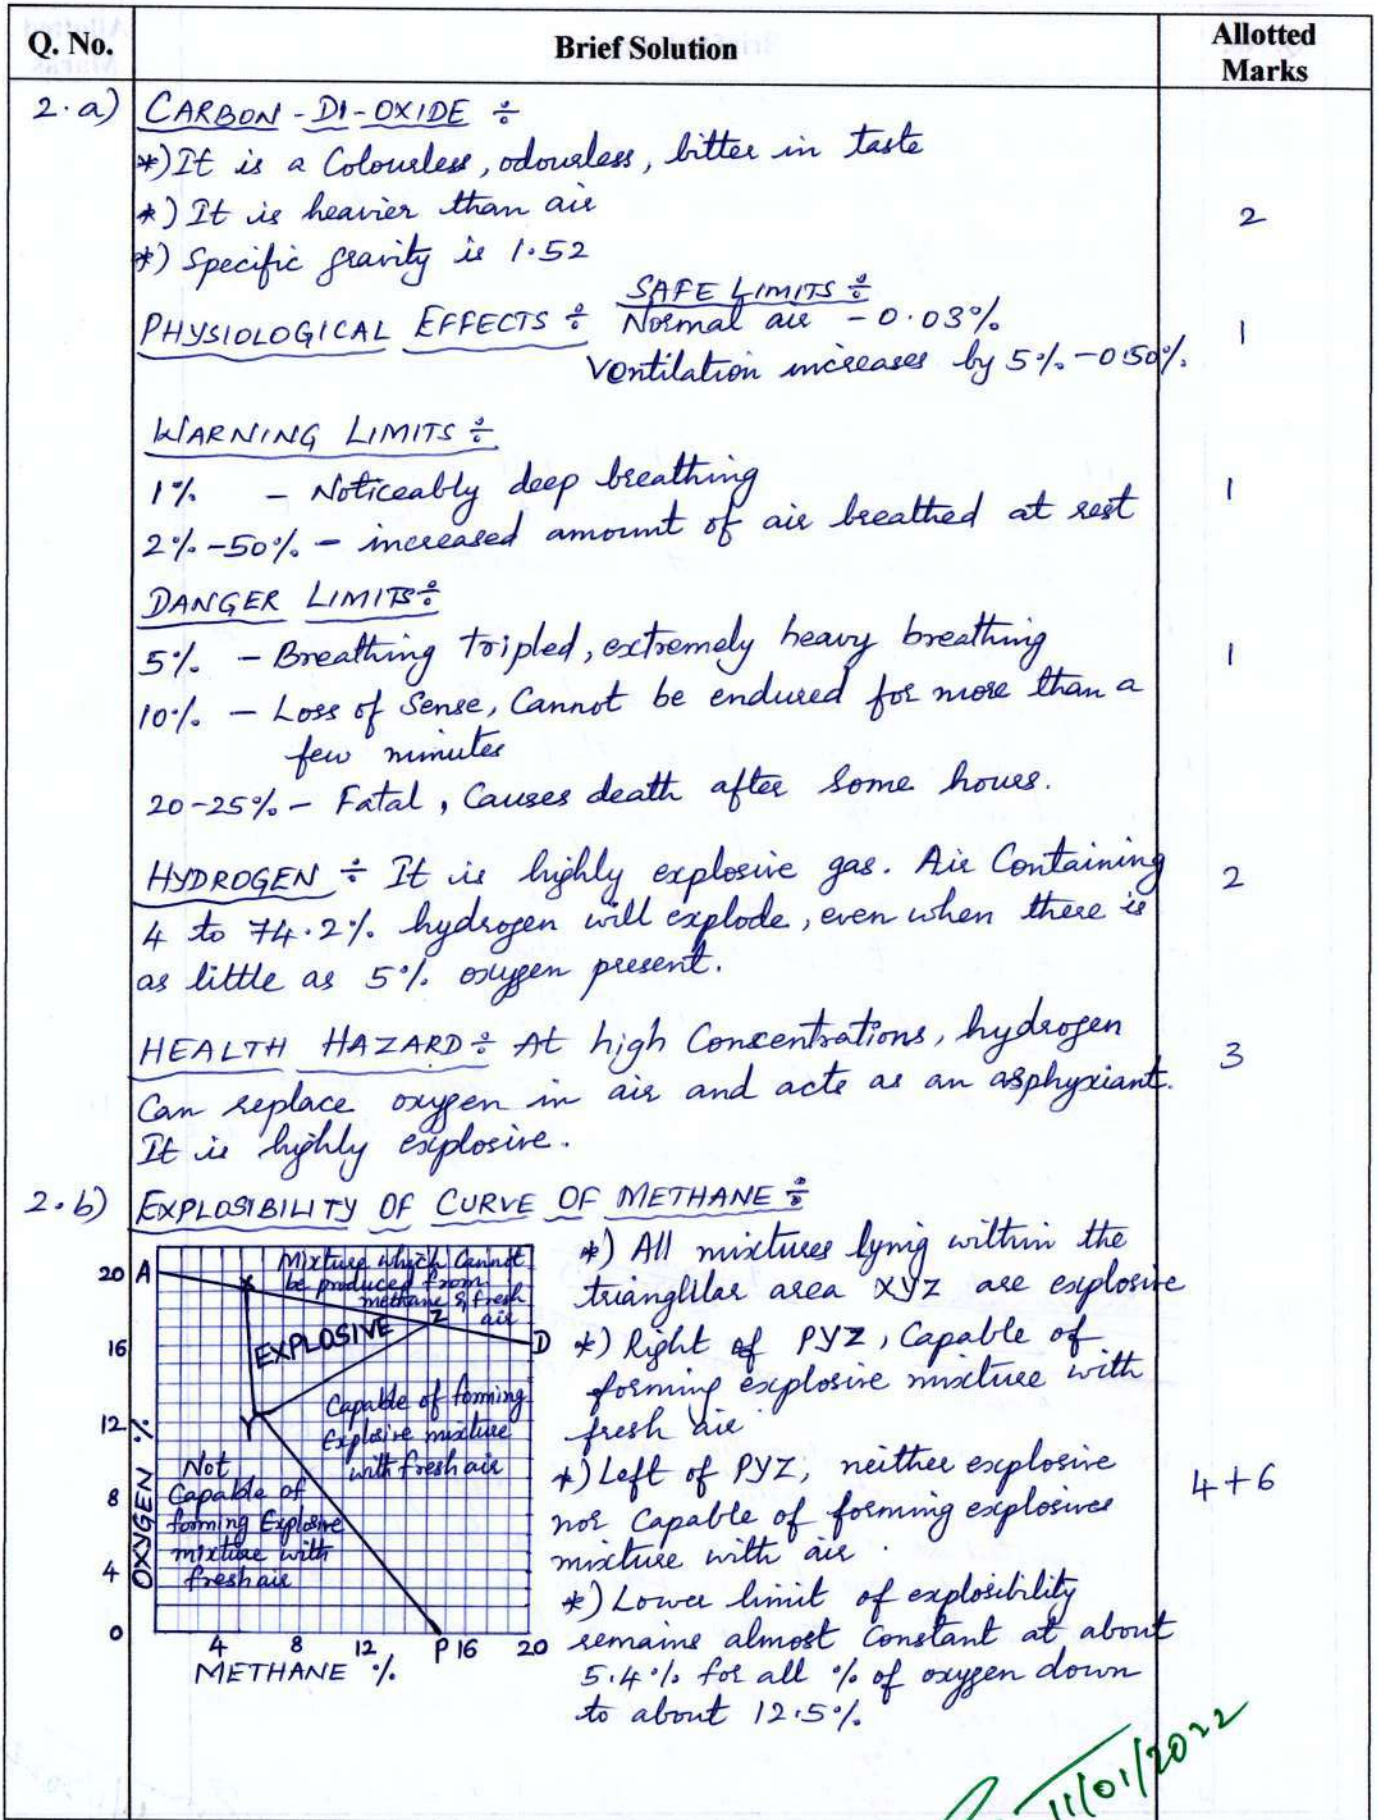 Q. No. Brief Solution Allotted Marks
2.a) CARBON-DI-OXIDE ÷
*) It is a Colourless, odourless, bitter in taste
*) It is heavier than air
2
*) Specific gravity is 1.52
SAFE LIMITS ÷
PHYSIOLOGICAL EFFECTS ÷ Normal air - 0.03%
1
Ventilation increases by 5% - 0.50%
WARNING LIMITS ÷
1% - Noticeably deep breathing
1
2% - 50% - increased amount of air breathed at rest
DANGER LIMITS ÷
5% - Breathing tripled, extremely heavy breathing
1
10% - Loss of Sense, Cannot be endured for more than a
few minutes
20-25% - Fatal, Causes death after some hours.
HYDROGEN ÷ It is highly explosive gas. Air Containing
2
4 to 74.2% hydrogen will explode, even when there is
as little as 5% oxygen present.
HEALTH HAZARD ÷ At high Concentrations, hydrogen
3
Can replace oxygen in air and acts as an asphyxiant.
It is highly explosive.
2.b) EXPLOSIBILITY OF CURVE OF METHANE ÷
20 A
16
12
8
4
0
OXYGEN %
Mixture which Cannot
be produced from
methane & fresh
air
X
Z
EXPLOSIVE
D
Y
Capable of forming
Explosive mixture
with fresh air
Not
Capable of
forming Explosive
mixture with
fresh air
4 8 12 P 16 20
METHANE %
*) All mixtures lynig within the
trianglular area XYZ are explosive
*) Right of PYZ, Capable of
forming explosive mixture with
fresh air
*) Left of PYZ, neither explosive
nor Capable of forming explosives
mixture with air.
4+6
*) Lower limit of explosibility
remains almost Constant at about
5.4% for all % of oxygen down
to about 12.5%
11/01/2022